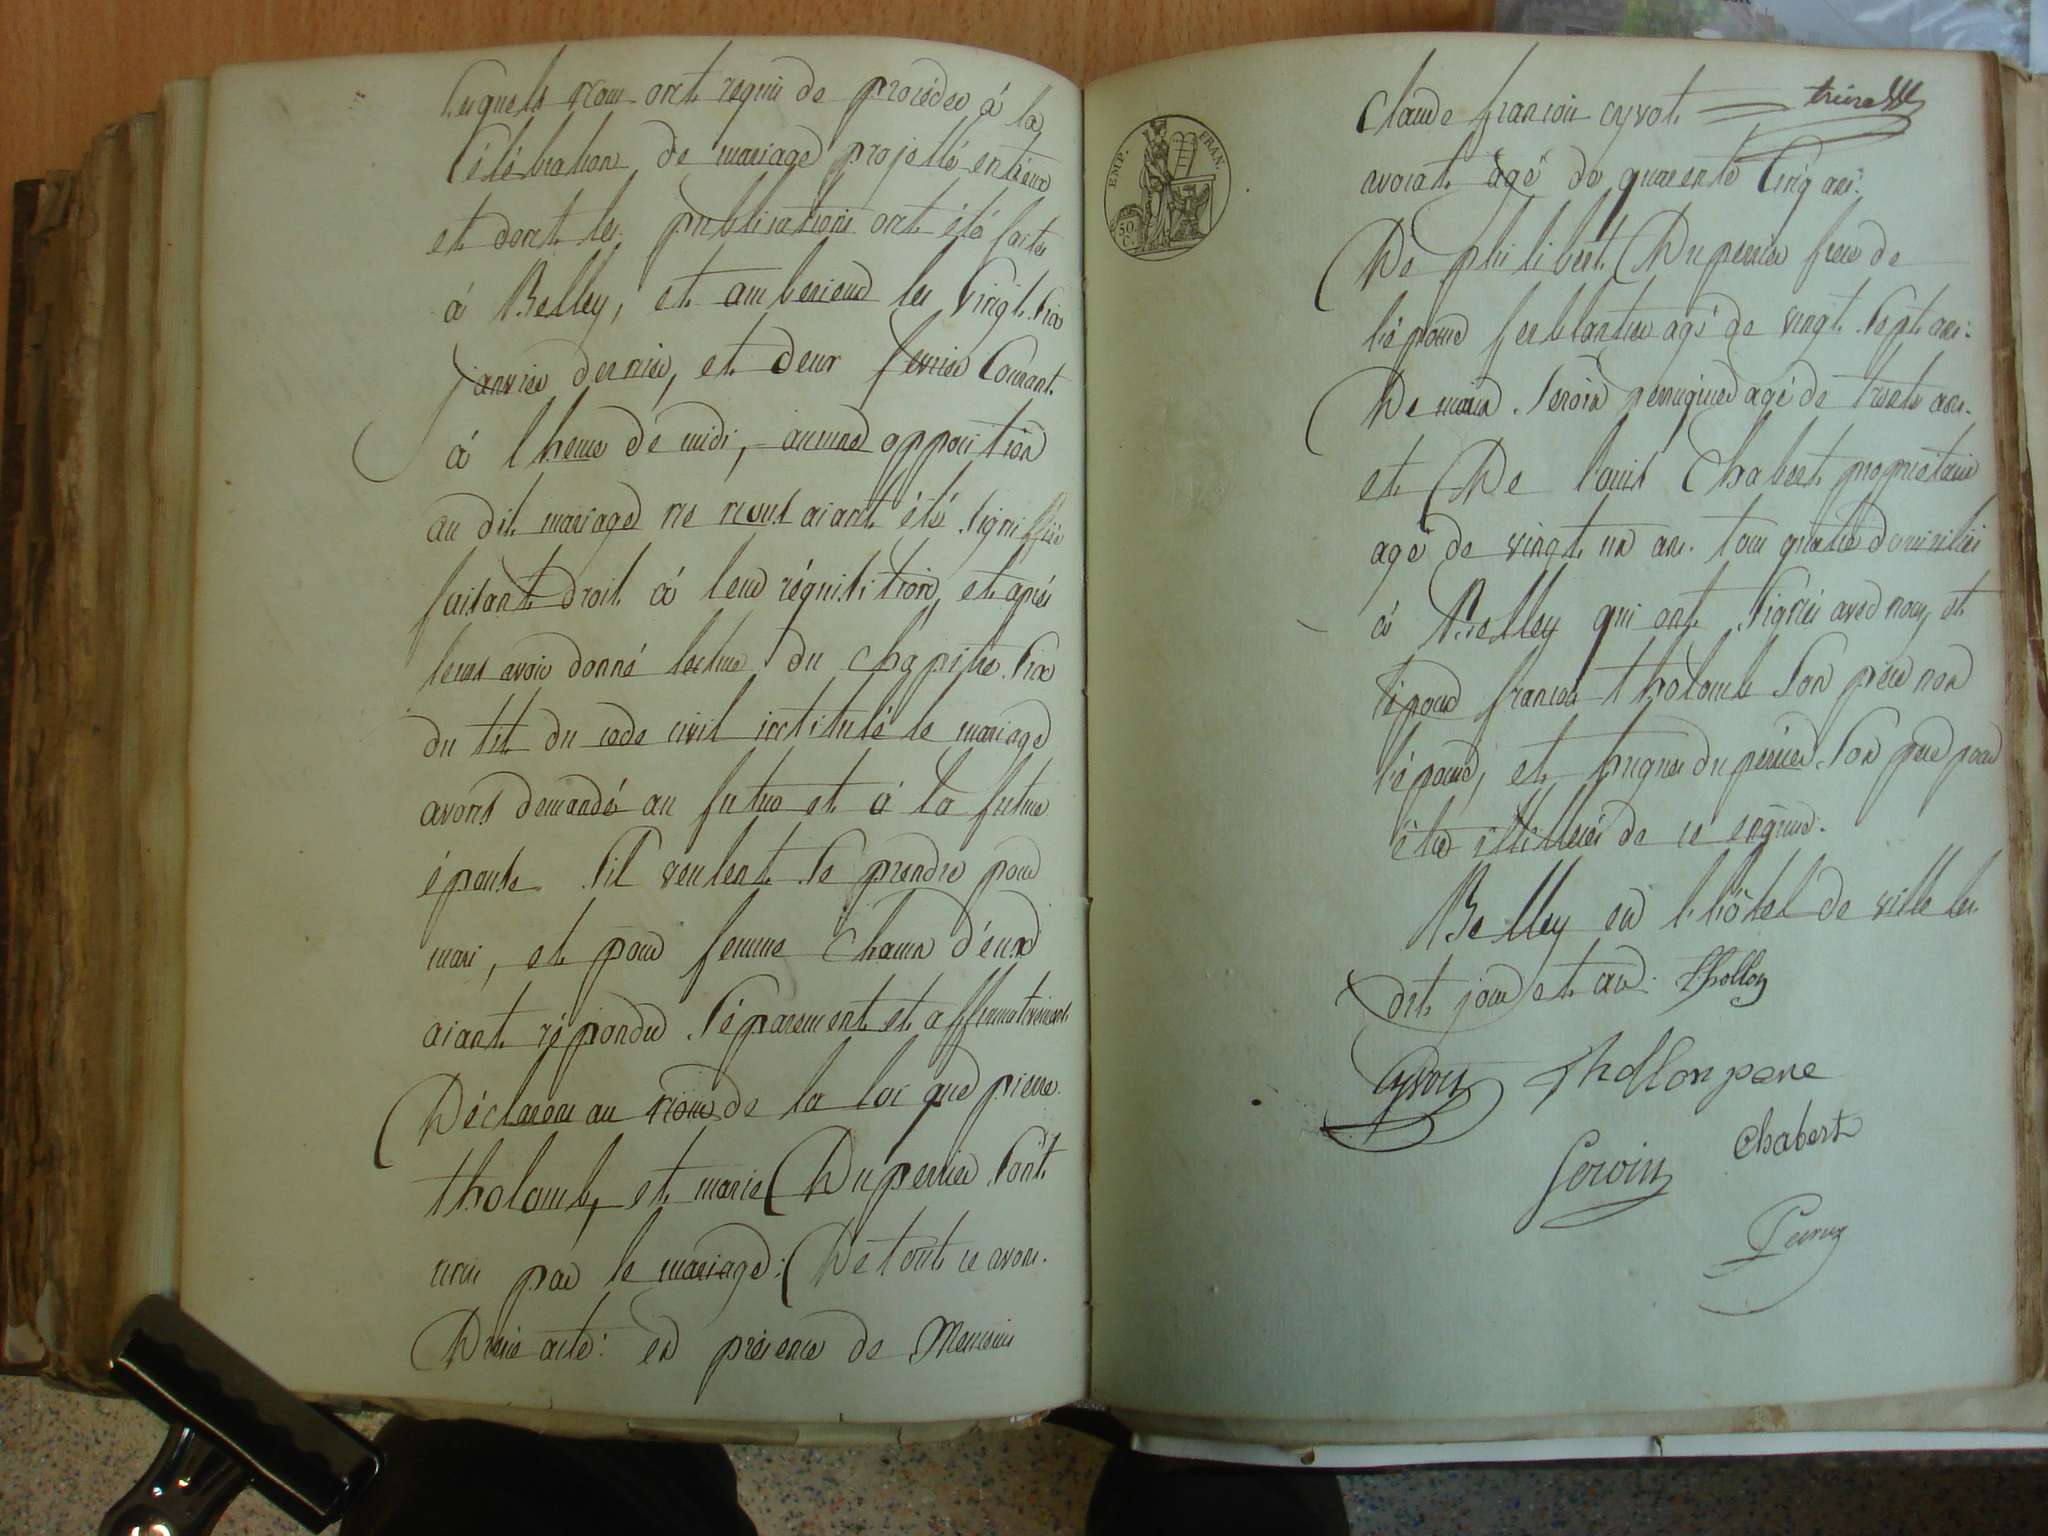 lesquels nous ont requis de procéder à la
Célébration de mariage projetté entreux
et dont les publications ont été faites
à Belley, et amberieux les vingt Six
janvier dernier, et deux fevrier Courant.
à lheure de midi, aucune opposition
au dit mariage ne nous aiant été Signiffiée
faisant droit à leur réquisition, et après
leurs avoir donné lecture du chapitre Six
du tit du code civil intitulé le mariage
avons demandé au futur et à la future
épouse S'il veulent Se prendre pour
mari, et pour femme chacun d'eux
aiant répondu Séparement et affirmativement
Déclarons au nom de la loi que pierre
tholomb, et marie Duperrier Sont
unis par le mariage: De tout ce avons
Dressé acte: en présence de Messieurs
EMP. FRAN.
50 C.
Claude françois cyvot
avocat agé de quarente Cinq ans.
De philibert Duperrier frere de
l'épouse ferblantier agé de vingt Sept ans.
De marin Seroin perruquier agé de trente ans.
et De louis Chabert propriétaire
agé de vingt un ans. tous quatre domiciliés
à Belley qui ont Signés avec nous, et
l'époux françois tholomb Son père non
l'épouse, et hugues duperrier Son père pour
être illitterés de ce enquis.
Belley en l'hôtel de ville les
dit jour et an. thollon
Cyvot thollon pere
Chabert
Seroin